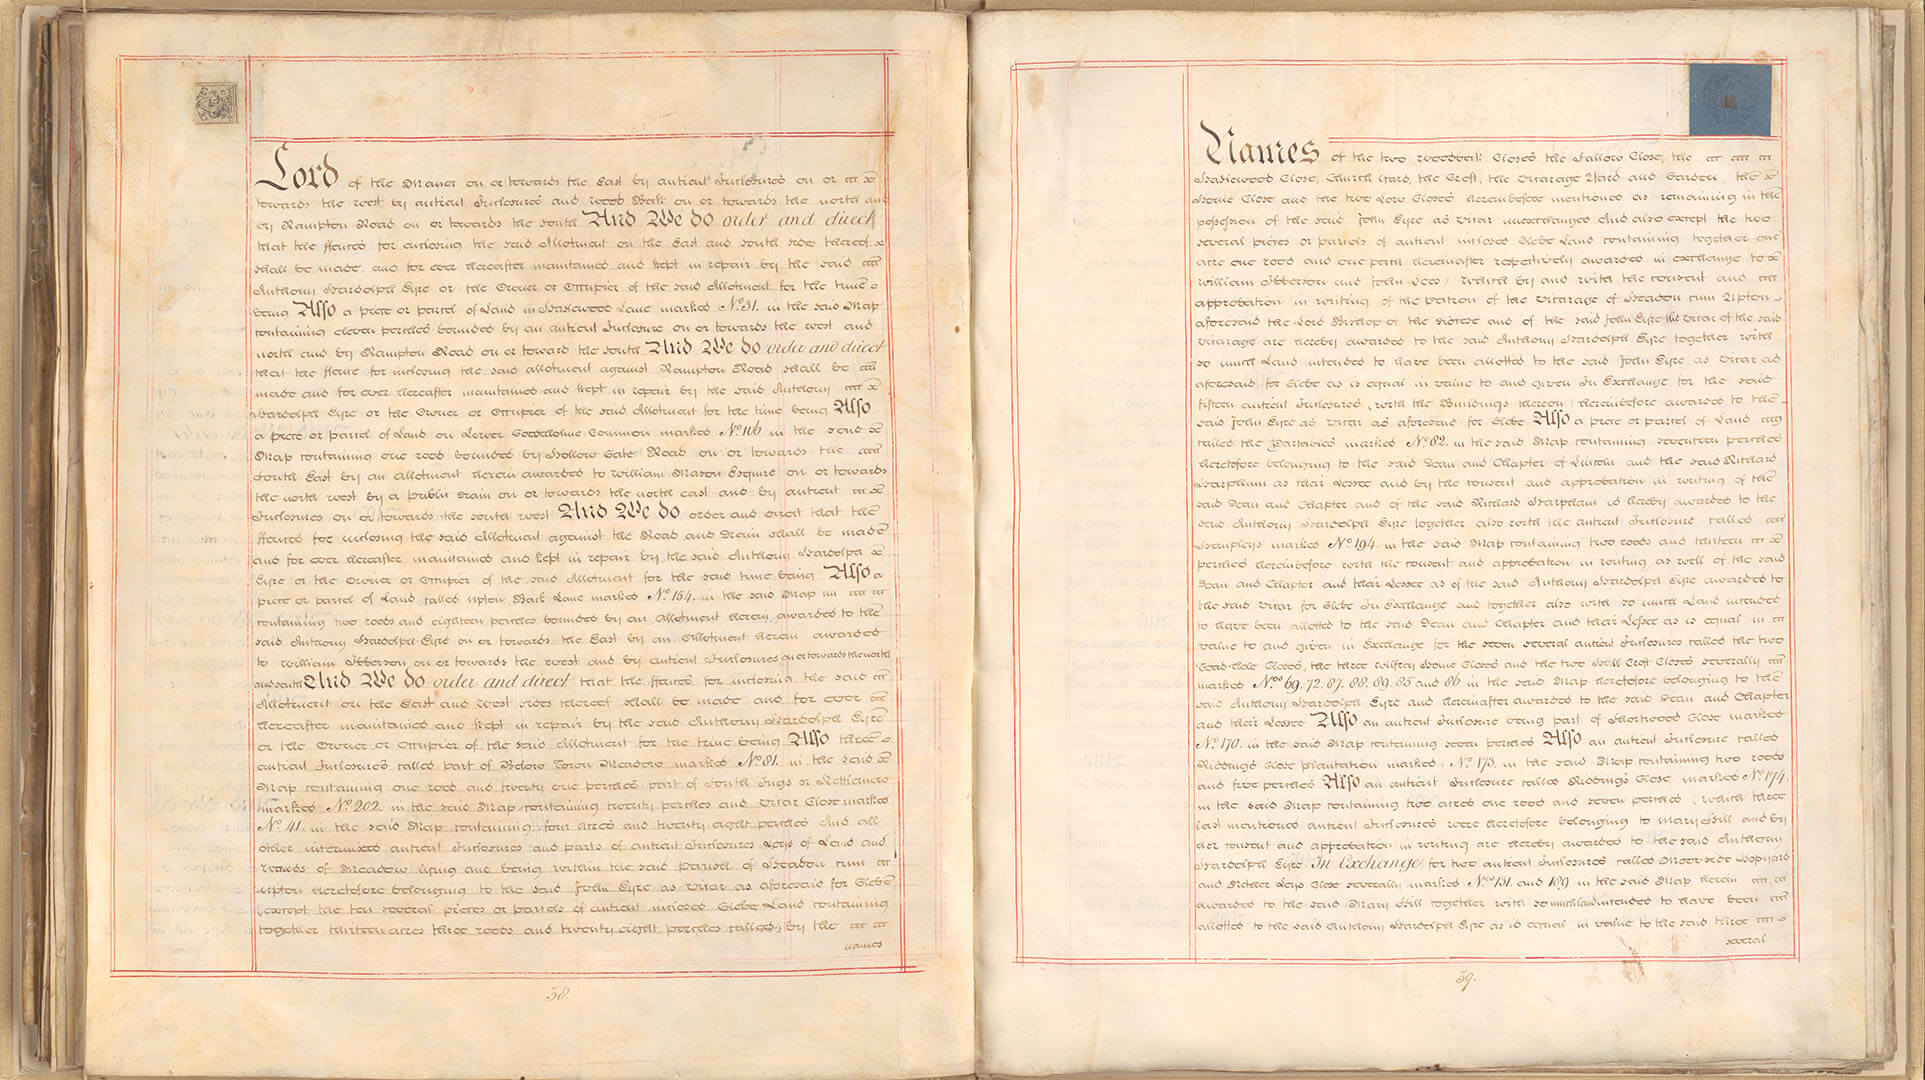 Lord of the Manor on or towards the East by antient Inclosures on or
towards the west by antient Inclosures and Wood Beck on or towards the north and
by Rampton Road on or towards the south And We do order and direct
that the ffences for inclosing the said Allotment on the East and south sides thereof
shall be made and for ever hereafter maintained and kept in repair by the said
Anthony Hardolph Eyre or the Owner or Occupier of the said Allotment for the time
being Also a piece or parcel of Land in Haslewood Lane marked No. 31. in the said Map
containing eleven perches bounded by an antient Inclosure on or towards the west and
north and by Rampton Road on or toward the south And We do order and direct
that the ffence for inclosing the said allotment against Rampton Road shall be
made and for ever hereafter maintained and kept in repair by the said Anthony
Hardolph Eyre or the Owner or Occupier of the said Allotment for the time being Also
a piece or parcel of Land on Lower Common marked No. 106 in the said
Map containing one rood bounded by Hollow Gate Road on or towards the
South East by an allotment herein awarded to William Mason Esquire on or towards
the north west by a Public Drain on or towards the north east and by antient
Inclosures on or towards the south west And We do order and direct that the
ffences for inclosing the said Allotment against the Road and Drain shall be made
and for ever hereafter maintained and kept in repair by the said Anthony Hardolph
Eyre or the Owner or Occupier of the said Allotment for the said time being Also a
piece or parcel of Land called Upton Back Lane marked No. 154. in the said Map
containing two roods and eighteen perches bounded by an Allotment herein awarded to the
said Anthony Hardolph Eyre on or towards the East by an Allotment herein awarded
to William Ibberson on or towards the west and by antient Inclosures on or towards the north
and south And We do order and direct that the ffences for inclosing the said
Allotment on the East and west sides thereof shall be made and for ever
hereafter maintained and kept in repair by the said Anthony Hardolph Eyre
or the Owner or Occupier of the said Allotment for the time being Also three
antient Inclosures called part of Below Town Meadow marked No. 81. in the said
Map containing one rood and twenty one perches part of South Ings or
marked No. 202. in the said Map containing twenty perches and Vicar Close marked
No. 41. in the said Map containing four acres and twenty eight perches And all
other intermixed antient Inclosures and parts of antient Inclosures Leys of Land and
of Meadow lying and being within the said Parish of Headon cum
Upton heretofore belonging to the said John Eyre as Vicar as aforesaid for Glebe
(except the ten several pieces or parcels of antient inclosed Glebe Land containing
together thirteen acres three roods and twenty eight perches called by the
names
38.
Names of the two Closes the Fallow Close, the
Haslewood Close, Church Yard, the Croft, the Vicarage Yard and Garden, the
Home Close and the two Low Closes hereinbefore mentioned as remaining in the
possession of the said John Eyre as Vicar unexchanged And also except the two
several pieces or parcels of antient inclosed Glebe Land containing together one
acre one rood and one perch hereinafter respectively awarded in exchange to
William Ibberson and John Lees) which by and with the consent and
approbation in writing of the patron of the Vicarage of Headon cum Upton
aforesaid the Lord Bishop of the diocese and of the said John Eyre the Vicar of the said
vicarage are hereby awarded to the said Anthony Hardolph Eyre together with
so much Land intended to have been allotted to the said John Eyre as Vicar as
aforesaid for Glebe as is equal in value to and given In Exchange for the said
fifteen antient Inclosures (with the Buildings thereon) hereinbefore awarded to the
said John Eyre as Vicar as aforesaid for Glebe Also a piece or parcel of Land
called the marked No. 82. in the said Map containing seventeen perches
heretofore belonging to the said Dean and Chapter of Lincoln and the said Richard
Harpham as their Lessee and by the consent and approbation in writing of the
said Dean and Chapter and of the said Richard Harpham is hereby awarded to the
said Anthony Hardolph Eyre together also with the antient Inclosure called
marked No. 194. in the said Map containing two roods and thirteen
perches hereinbefore with the consent and approbation in writing as well of the said
Dean and Chapter and their Lessee as of the said Anthony Hardolph Eyre awarded to
the said Vicar for Glebe In Exchange and together also with so much Land intended
to have been allotted to the said Dean and Chapter and their Lessee as is equal in
value to and given in Exchange for the seven several antient Inclosures called the two
Closes, the three Home Closes and the two Hill Croft Closes severally
marked Nos. 69. 72. 87. 88. 89. 85 and 86 in the said Map heretofore belonging to the
said Anthony Hardolph Eyre and hereinafter awarded to the said Dean and Chapter
and their Lessee Also an antient Inclosure being part of Shortwood Close marked
No. 170. in the said Map containing seven perches Also an antient Inclosure called
Riddings Close plantation marked No. 173. in the said Map containing two roods
and five perches Also an antient Inclosure called Riddings Close marked No. 174.
in the said Map containing two acres one rood and seven perches (which three
last mentioned antient Inclosures were heretofore belonging to Mary Hill and by
her consent and approbation in writing are hereby awarded to the said Anthony
Hardolph Eyre In Exchange for two antient Inclosures called Moor side Hopyard
and Nether Leys Close severally marked Nos. 131. and 189 in the said Map herein
awarded to the said Mary Hill together with so much land intended to have been
allotted to the said Anthony Hardolph Eyre as is equal in value to the said three
several
39.